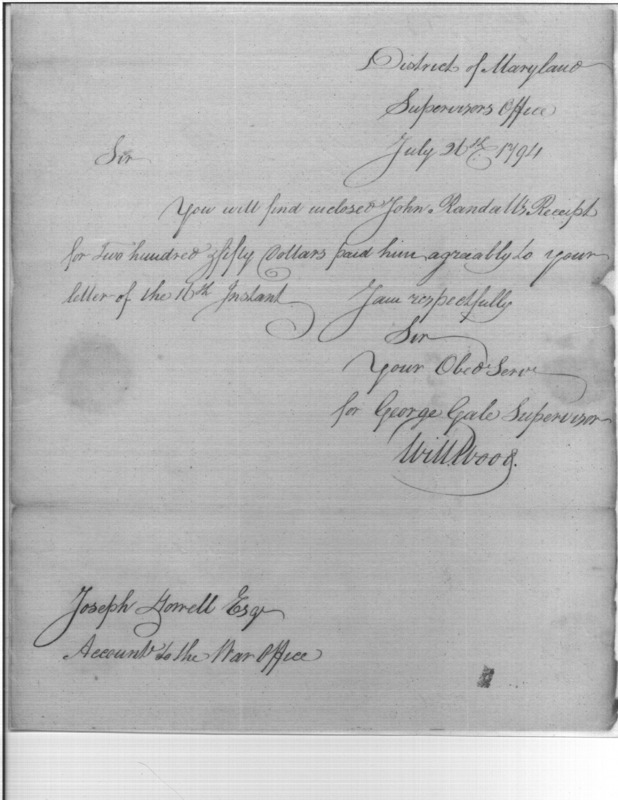 District of Maryland
Supervisors Office
July 26th 1794
Sir
You will find inclosed John Randall's Receipt
for Two hundred & fifty Dollars paid him agreably to your
letter of the 16th Instant
I am respectfully
Sir
Your Obed Serv
for George Gale Supervisor
Will Wood.
Joseph Howell Esqr
Account to the War Office